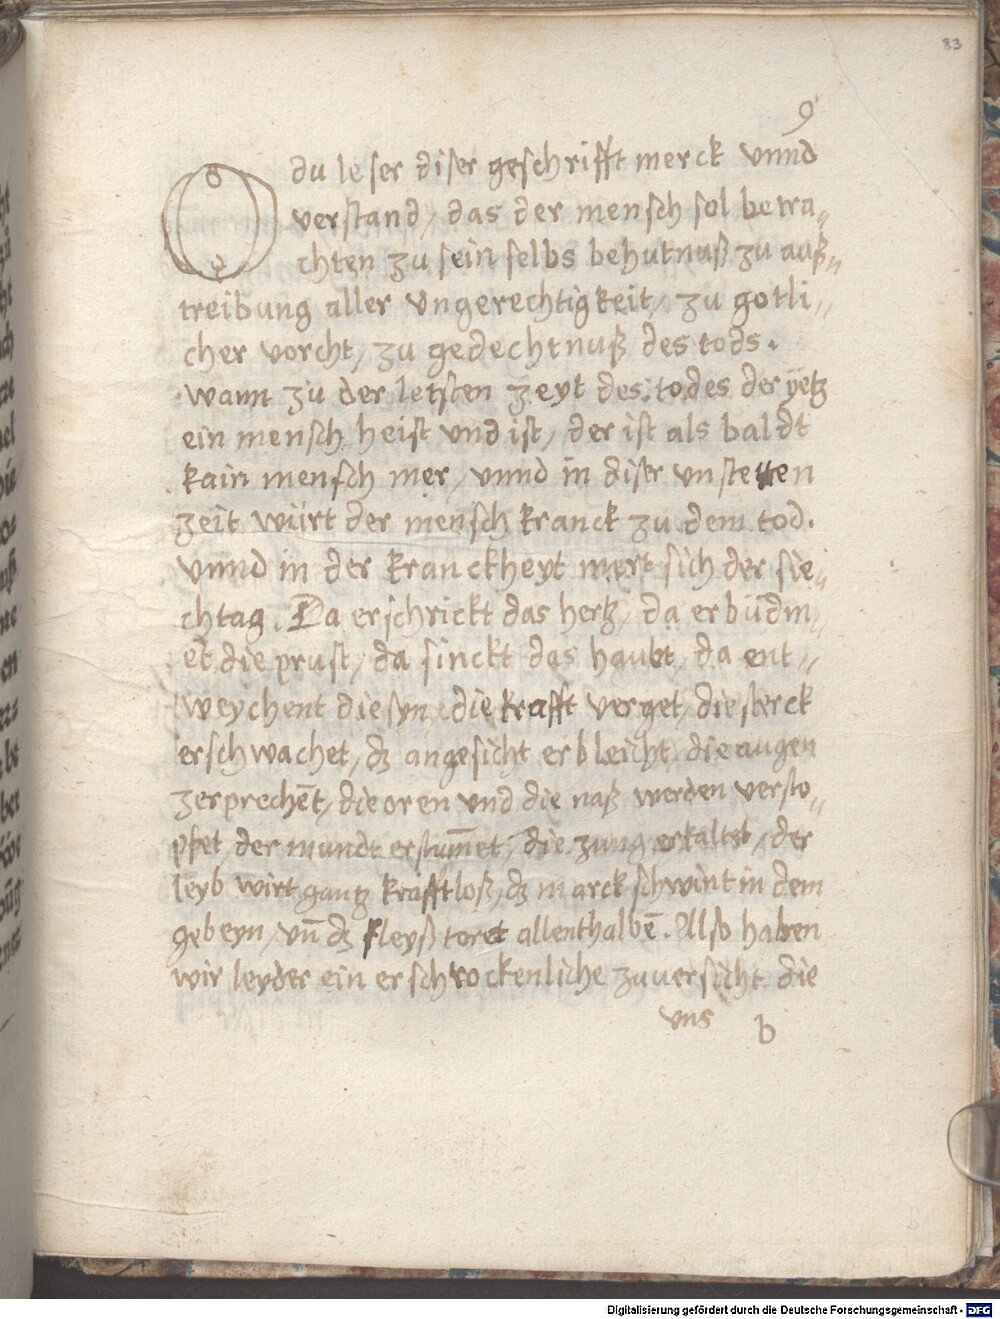 83
9
O du leser diser geschrifft merck vnnd
verstand / das der mensch sol betra„
chten zu sein selbs behutnuß zu auß„
treibung aller vngerechtigkeit / zu gotli„
cher vorcht / zu gedechtnuß des tods.
Wann zu der letsten zeyt des todes der yetz
ein mensch heist vnd ist / der ist als baldt
kain mensch mer / vnnd in diser vnstetten
zeit würt der mensch kranck zu dem tod.
vnnd in der kranckheyt mert sich der sie„
chtag. Da erschrickt das hertz / da erbüdm„
et die prust / da sinckt das haubt / da ent„
weychent die syn / die krafft verget / die sterck
erschwachet / dz angesicht erbleicht / die augen
zerprechēt / die oren vnd die naß werden versto„
pfet / der mundt erstum̄et / die zung erkaltet / der
leyb wirt gantz krafftloß / dz marck schwint in dem
gebeyn / vn̄ dz fleysß toret allenthalbē. Also haben
wir leyder ein erschrockenliche zuuersicht die
vns b
Digitalisierung gefördert durch die Deutsche Forschungsgemeinschaft - DFG